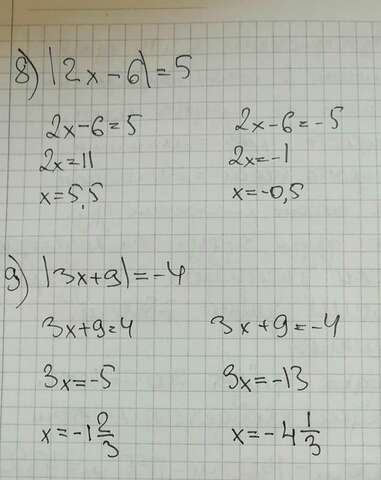 8) |2x-6|=5
2x-6=5 2x-6=-5
2x=11 2x=-1
x=5,5 x=-0,5
9) |3x+9|=-4
3x+9=4 3x+9=-4
3x=-5 3x=-13
x=-1 2/3 x=-4 1/3